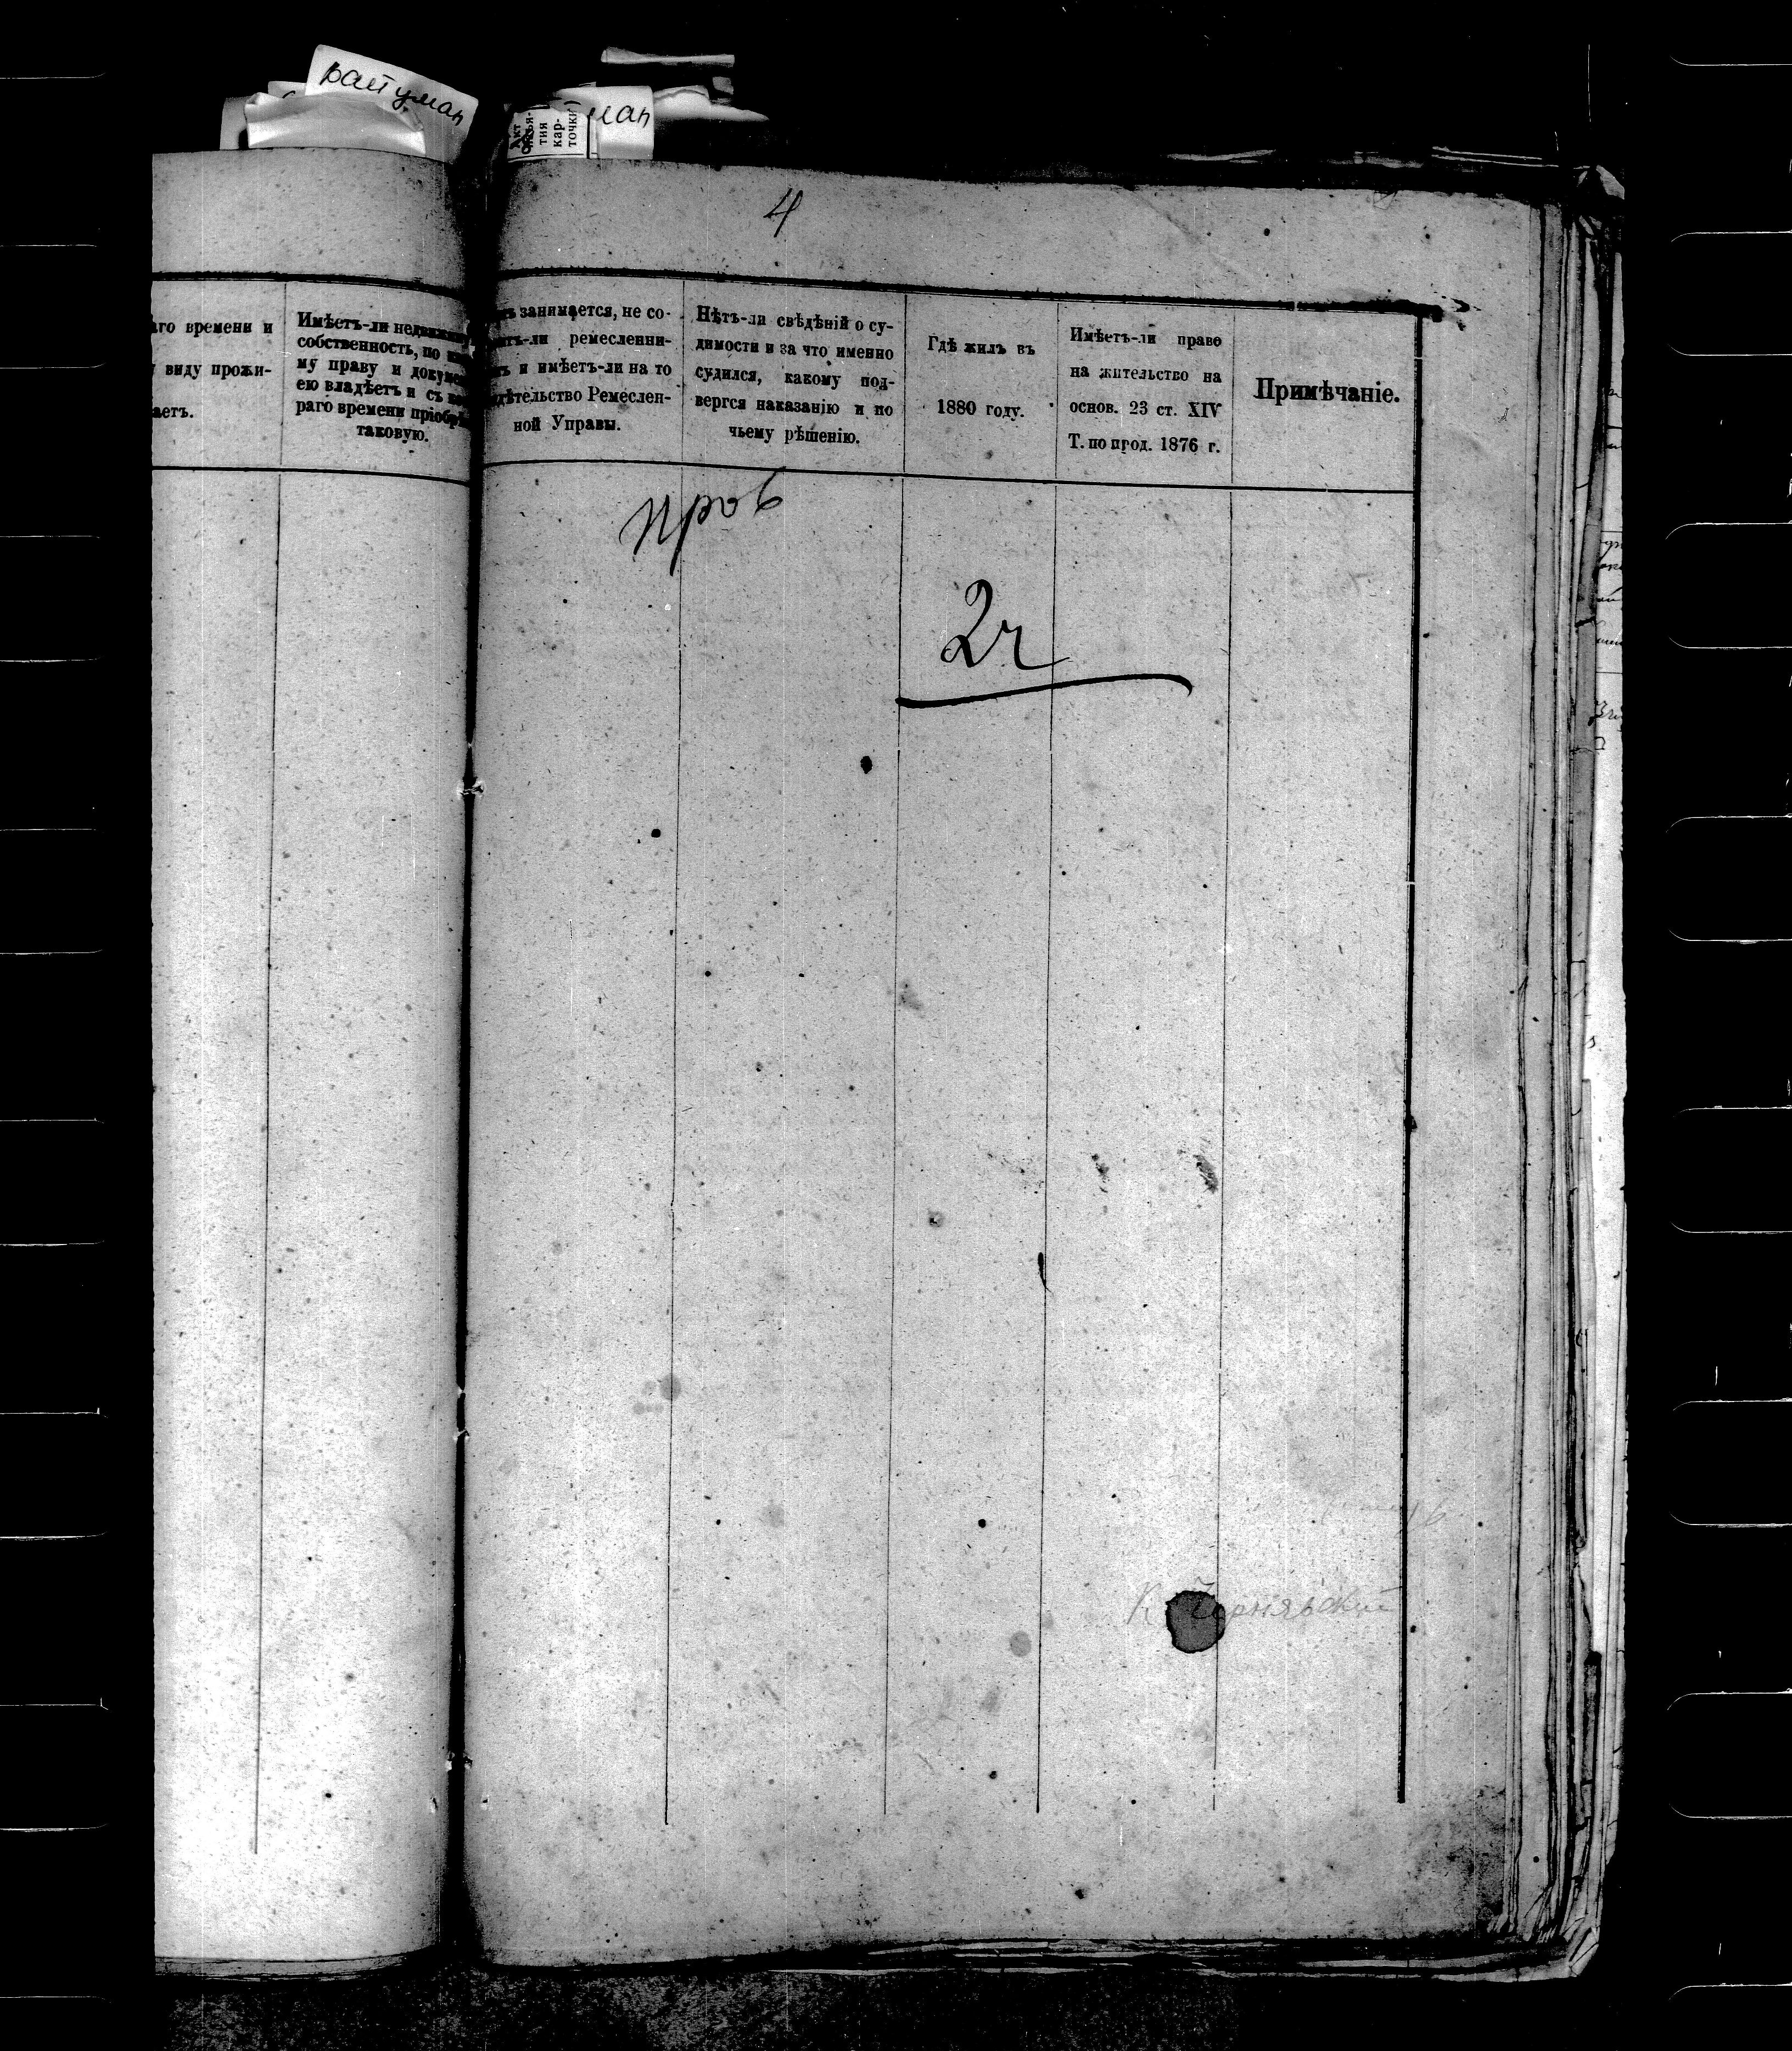 райуман
ман
Акт
изъя-
тия
кар-
точки
4
аго времени и
виду прожи-
аетъ.
Имѣетъ-ли недвижимую
собственность, по как
му праву и докумен
ею владѣетъ и съ ко
раго времени пріобрѣ
таковую.
ъ занимается, не со-
итъ-ли ремесленни-
ъ и имѣетъ-ли на то
дѣтельство Ремеслен-
ной Управы.
Нѣтъ-ли свѣдѣній о су-
димости и за что именно
судился, какому под-
вергся наказанію и по
чьему рѣшенію.
Гдѣ жилъ въ
1880 году.
Имѣетъ-ли право
на жительство на
основ. 23 ст. XIV
Т. по прод. 1876 г.
Примѣчаніе.
пров
2ч
К Чернявский